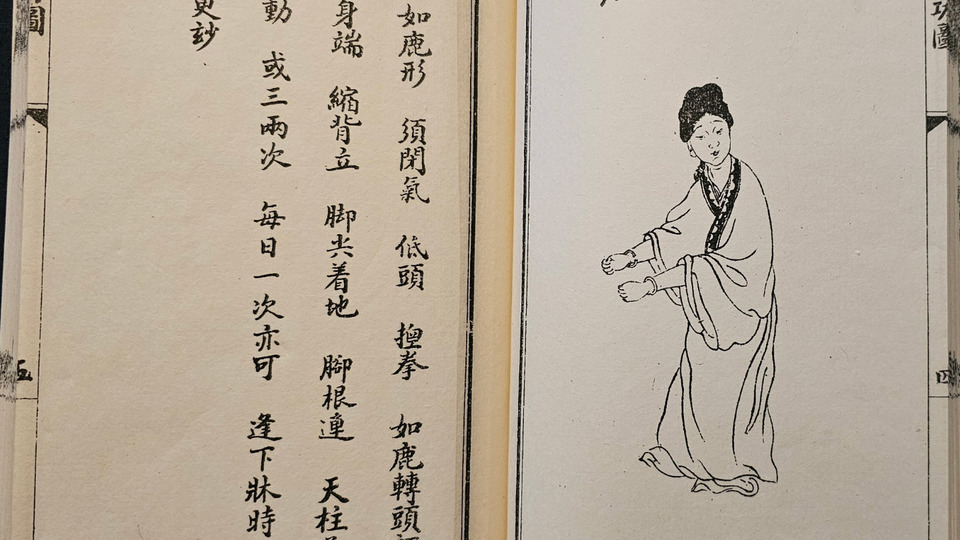 如鹿形 須閉氣 低頭 揑拳 如鹿轉頭
身端 縮背立 脚尖着地 脚根連 天柱
動 或三兩次 每日一次亦可 逢下牀時
更玅
圖
五
功圖
四